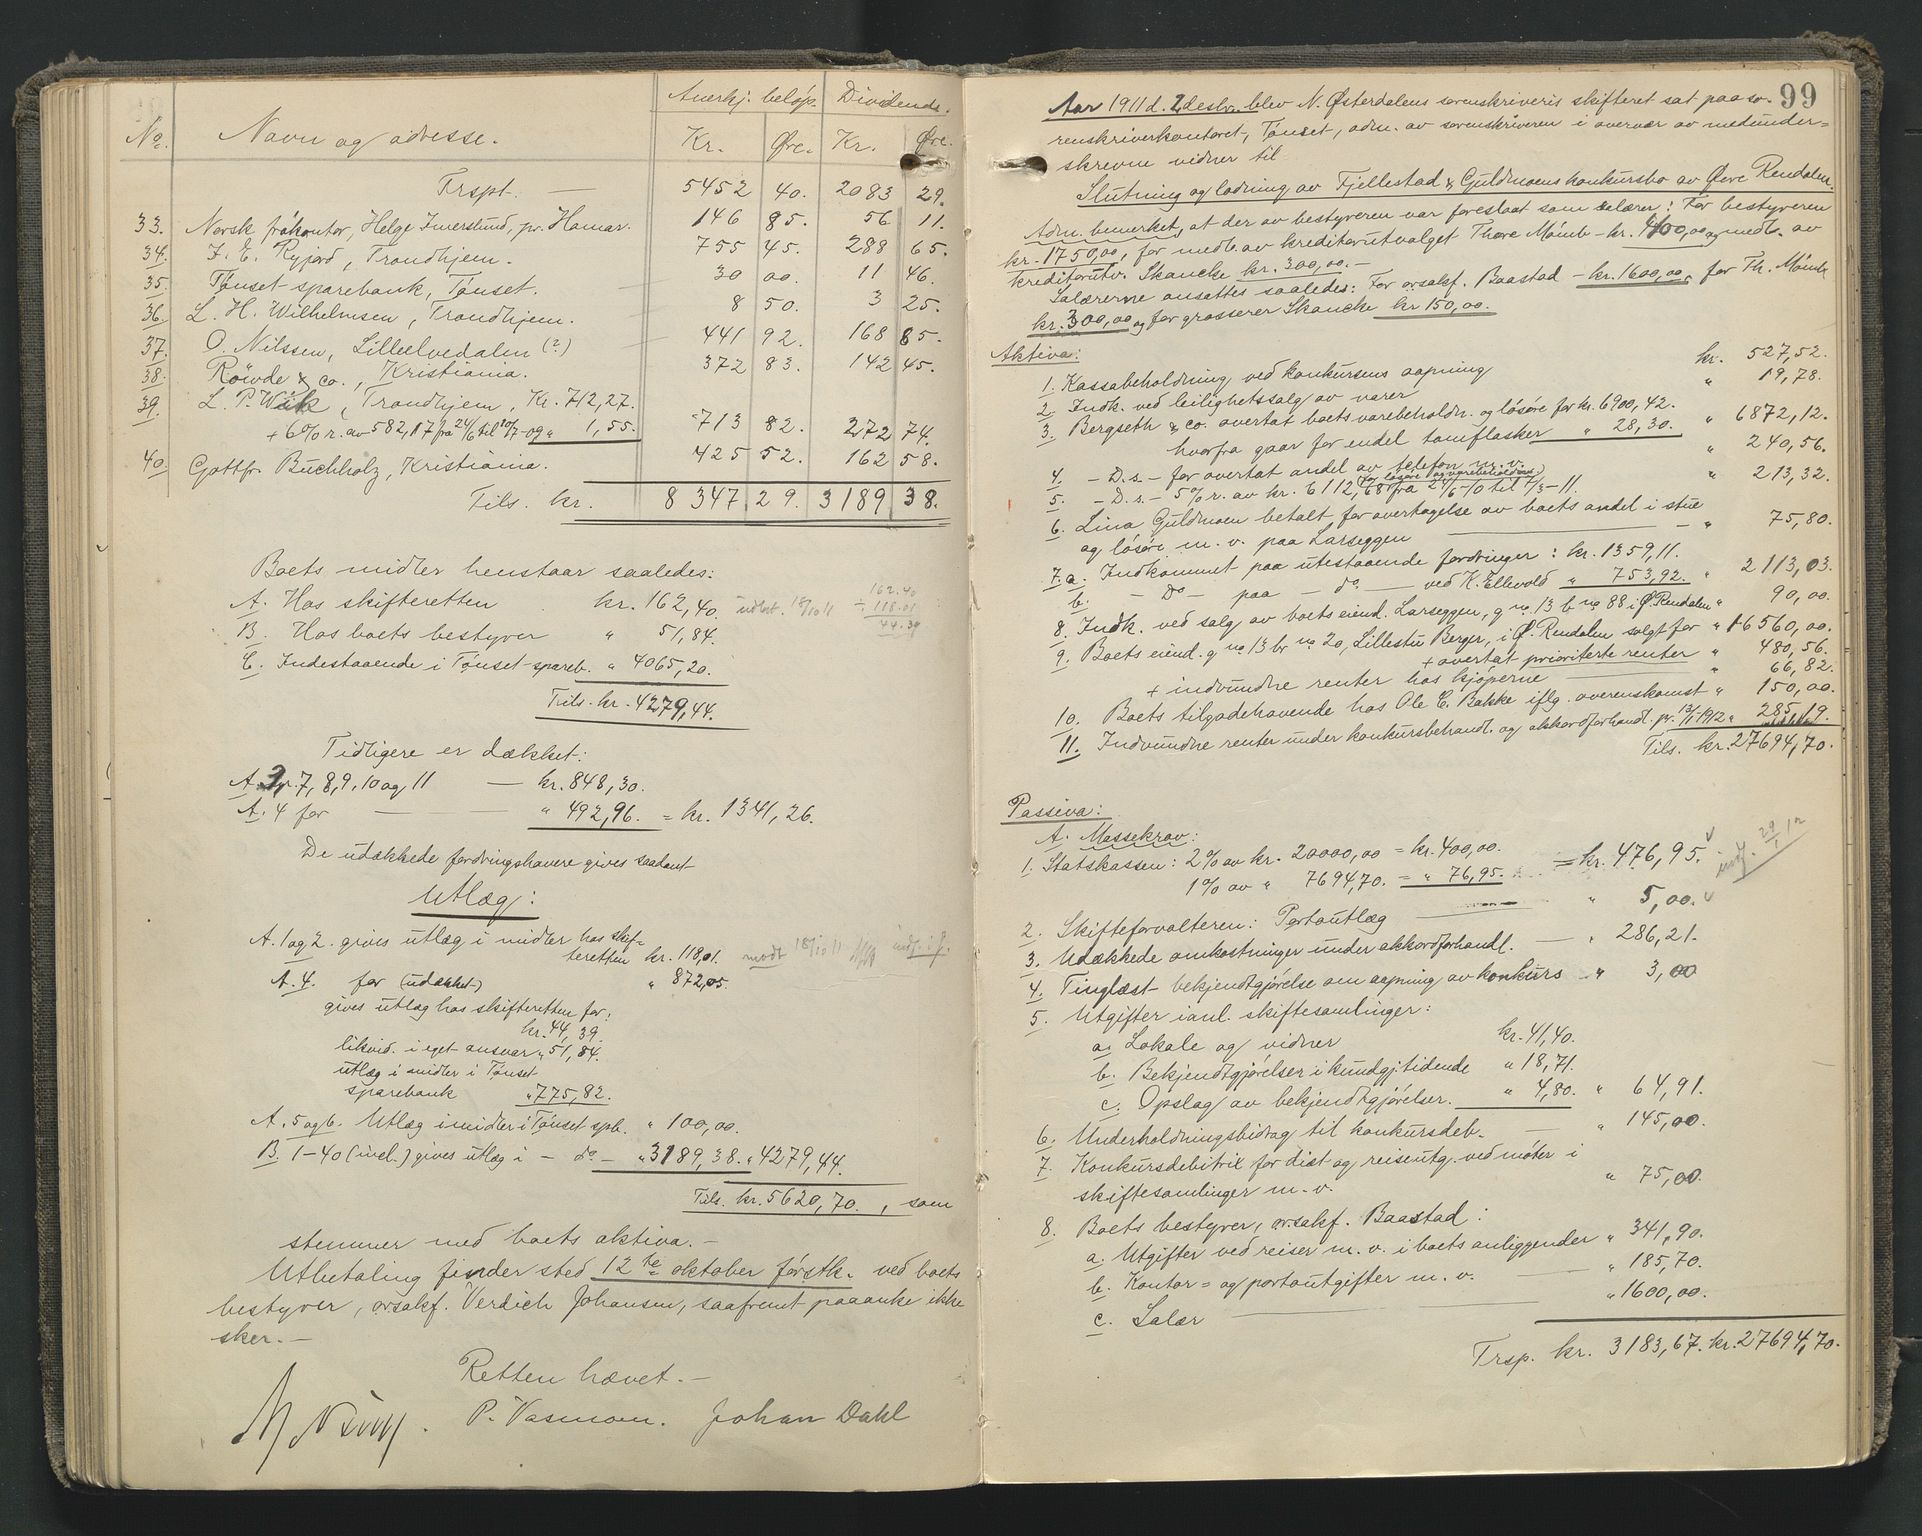 Anerkj. beløp. Dividende.
No. Navn og adresse. Kr. Øre. Kr. Øre.
Trspt. — 5452 40. 2083 29.
33. Norsk frøkontor, Helge Imerslund, pr. Hamar. 146 85. 56 11.
34. J. E. Ryjord, Trondhjem. 755 45. 288 65.
35. Tønset sparebank, Tønset. 30 00. 11 46.
36. L. H. Wilhelmsen, Trondhjem. 8 50. 3 25.
37. O. Nilssen, Lilleelvedalen (?) 441 92. 168 85.
38. Røwde & co., Kristiania. 372 83. 142 45.
39. L. P. Wiik, Trondhjem, Kr. 712,27.
+ 6% r. av 582,17 fra 24/6 til 10/7-09 " 1,55. 713 82. 272 74.
40. Gottfr. Buchholz, Kristiania. 425 52. 162 58.
Tils. kr. 8 347 29. 3 189 38.
Boets midler henstaar saaledes:
A. Hos skifteretten kr. 162,40. udbet. 18/10 11 162.40
÷ 118.01
44.39
B. Hos boets bestyrer " 51,84.
C. Indestaaende i Tønset spareb. " 4065,20.
Tils. kr. 4279,44.
Tidligere er dækket:
A. 3, 7, 8, 9, 10 og 11 — kr. 848,30.
A. 4 for — " 492,96. = kr. 1341,26.
De udækkede fordringshavere gives saadant
Utlæg:
A. 1 og 2. gives utlæg i midler hos skif=
teretten kr. 118,01. modt 18/10 11
A. 4. for (udækket) " 872,05.
gives utlæg hos skifteretten for:
kr. 44,39.
likvid. i eget ansvar " 51,84.
utlæg i midler i Tønset
sparebank " 775,82.
A. 5 og 6. Utlæg i midler i Tønset spb. " 100,00.
B. 1-40 (incl.) gives utlæg i - do - " 3189,38. " 4279,44.
Tils. kr. 5620,70., som
stemmer med boets aktiva. -
Utbetaling finder sted 12te oktober førstk. ved boets
bestyrer, o.r.sakf. Verdich Johansen, saafremt paaanke ikke
sker. -
Retten hævet. -
P. Vasmoen. Johan Dahl
99
Aar 1911 d. 2 desbr. blev N. Østerdalens sorenskriveris skifteret sat paa so-
renskriverkontoret, Tønset, adm. av sorenskriveren i overvær av medunder=
skrevne vidner til
Slutning og lodning av Fjellestad & Guldmoens konkursbo av Øvre Rendalen.
Adm. bemerket, at der av bestyreren var foreslaat som salærer: For bestyreren
kr. 1750,00, for medl. av kreditorutvalget Thore Mømb - kr. 400,00 og medl. av
kreditorutv. Skancke kr. 300,00. -
Salærerne ansattes saaledes: For o.r.sakf. Baastad - kr. 1600,00, for Th. Mømb
kr. 300,00 og for grosserer Skancke kr 150,00.
Aktiva:
1. Kassabeholdning ved konkursens aapning kr. 527,52.
2. Indk. ved leilighetssalg av varer " 19,78.
3. Bergseth & co. overtat boets varebeholdn. og løsøre for kr. 6900,42.
hvorfra gaar for endel tomflasker " 28,30. " 6872,12.
4. - D.s. - for overtat andel av telefon m.v. " 240,56.
for løsøre og varebeholdning
5. - D.s. - 5% r. av kr. 6112,68 fra 24/6-10 til 7/3-11. " 213,32.
6. Lina Guldmoen betalt for overtagelse av boets andel i stue
og løsøre m.v. paa Larseggen — " 75,80.
7. a. Indkommet paa utestaaende fordringer: kr. 1359,11.
b. - Do - paa - do - ved K. Ellevold " 753,92. " 2113,03.
8. Indk. ved salg av boets eiend. Larseggen, g no 13 b no 88 i Ø. Rendalen " 90,00.
9. Boets eiend. g no 13 br no 20, Lillestu Berger, i Ø. Rendalen solgt for " 16560,00.
+ overtat prioriterte renter " 480,56.
+ indvundne renter hos kjøperne — " 66,82.
10. Boets tilgodehavende hos Ole C. Bakke iflg. overenskomst " 150,00.
11. Indvundne renter under konkursbehandl. og akkordforhandl. pr. 13/1-1912 " 285,19.
Tils. kr. 27694,70.
Passiva:
A. Massekrav:
1. Statskassen: 2% av kr. 20000,00 = kr. 400,00.
1% av " 7694,70. = " 76,95. = kr. 476,95. indf. 29/1 12
2. Skifteforvalteren: Portoutlæg — " 5,00.
3. Udækkede omkostninger under akkordforhandl. — " 286,21.
4. Tinglæst bekjendtgjørelse om aapning av konkurs - " 3,00
5. Utgifter i anl. skiftesamlinger:
a. Lokale og vidner kr. 41,40.
b. Bekjendtgjørelser i kundgj.tidende " 18,71.
c. Opslag av bekjendtgjørelser. " 4,80. " 64,91.
6. Underholdningsbidrag til konkursdeb. — " 145,00.
7. Konkursdebitrix for diæt og reiseutg. ved møter i
skiftesamlinger m.v. " 75,00.
8. Boets bestyrer, o.r.sakf. Baastad:
a. Utgifter ved reiser m.v. i boets anliggender " 341,90.
b. Kontor= og portoutgifter m.v. — " 185,70.
c. Salær — " 1600,00.
Trsp. kr. 3183,67. kr. 27694,70.